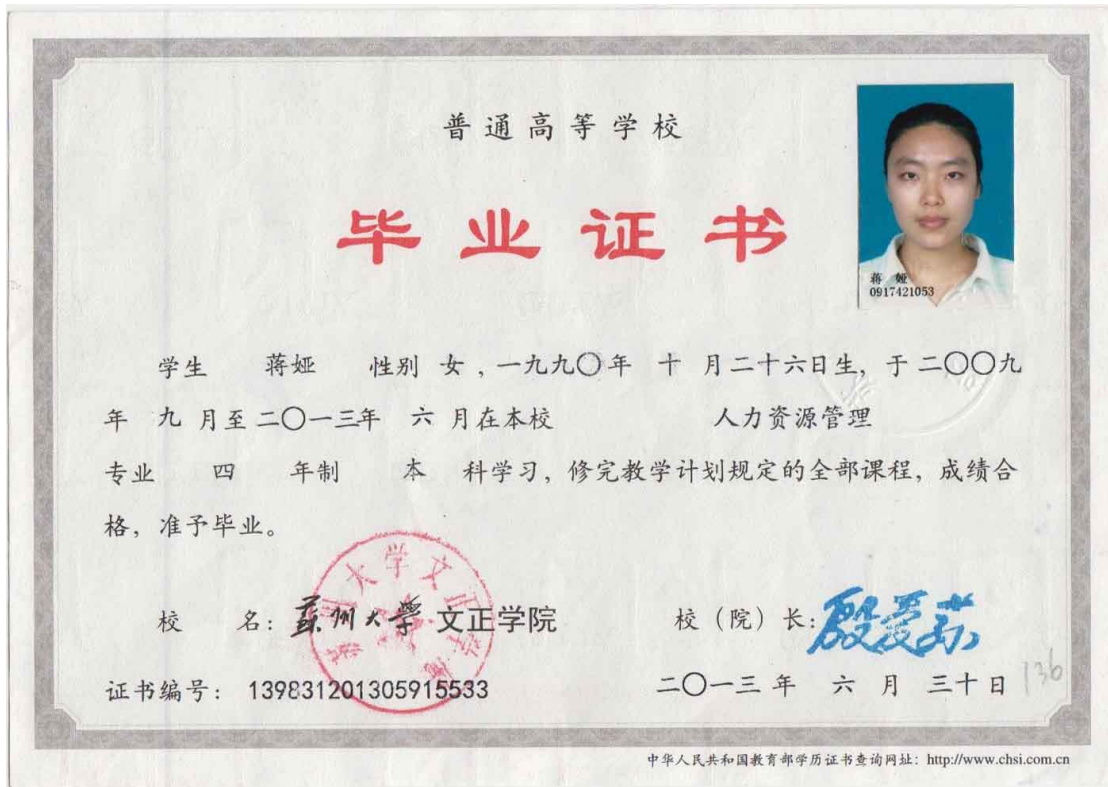 普通高等学校
毕业证书
蒋 娅
0917421053
学生 蒋娅 性别 女，一九九〇年 十 月二十六日生，于二〇〇九
年 九 月至二〇一三年 六 月在本校 人力资源管理
专业 四 年制 本 科学习，修完教学计划规定的全部课程，成绩合
格，准予毕业。
苏州大学文正学院
校 名：蘇州大學 文正学院
校（院）长：殷爱荪
证书编号： 139831201305915533
二〇一三 年 六 月 三十日
136
中华人民共和国教育部学历证书查询网址：http://www.chsi.com.cn